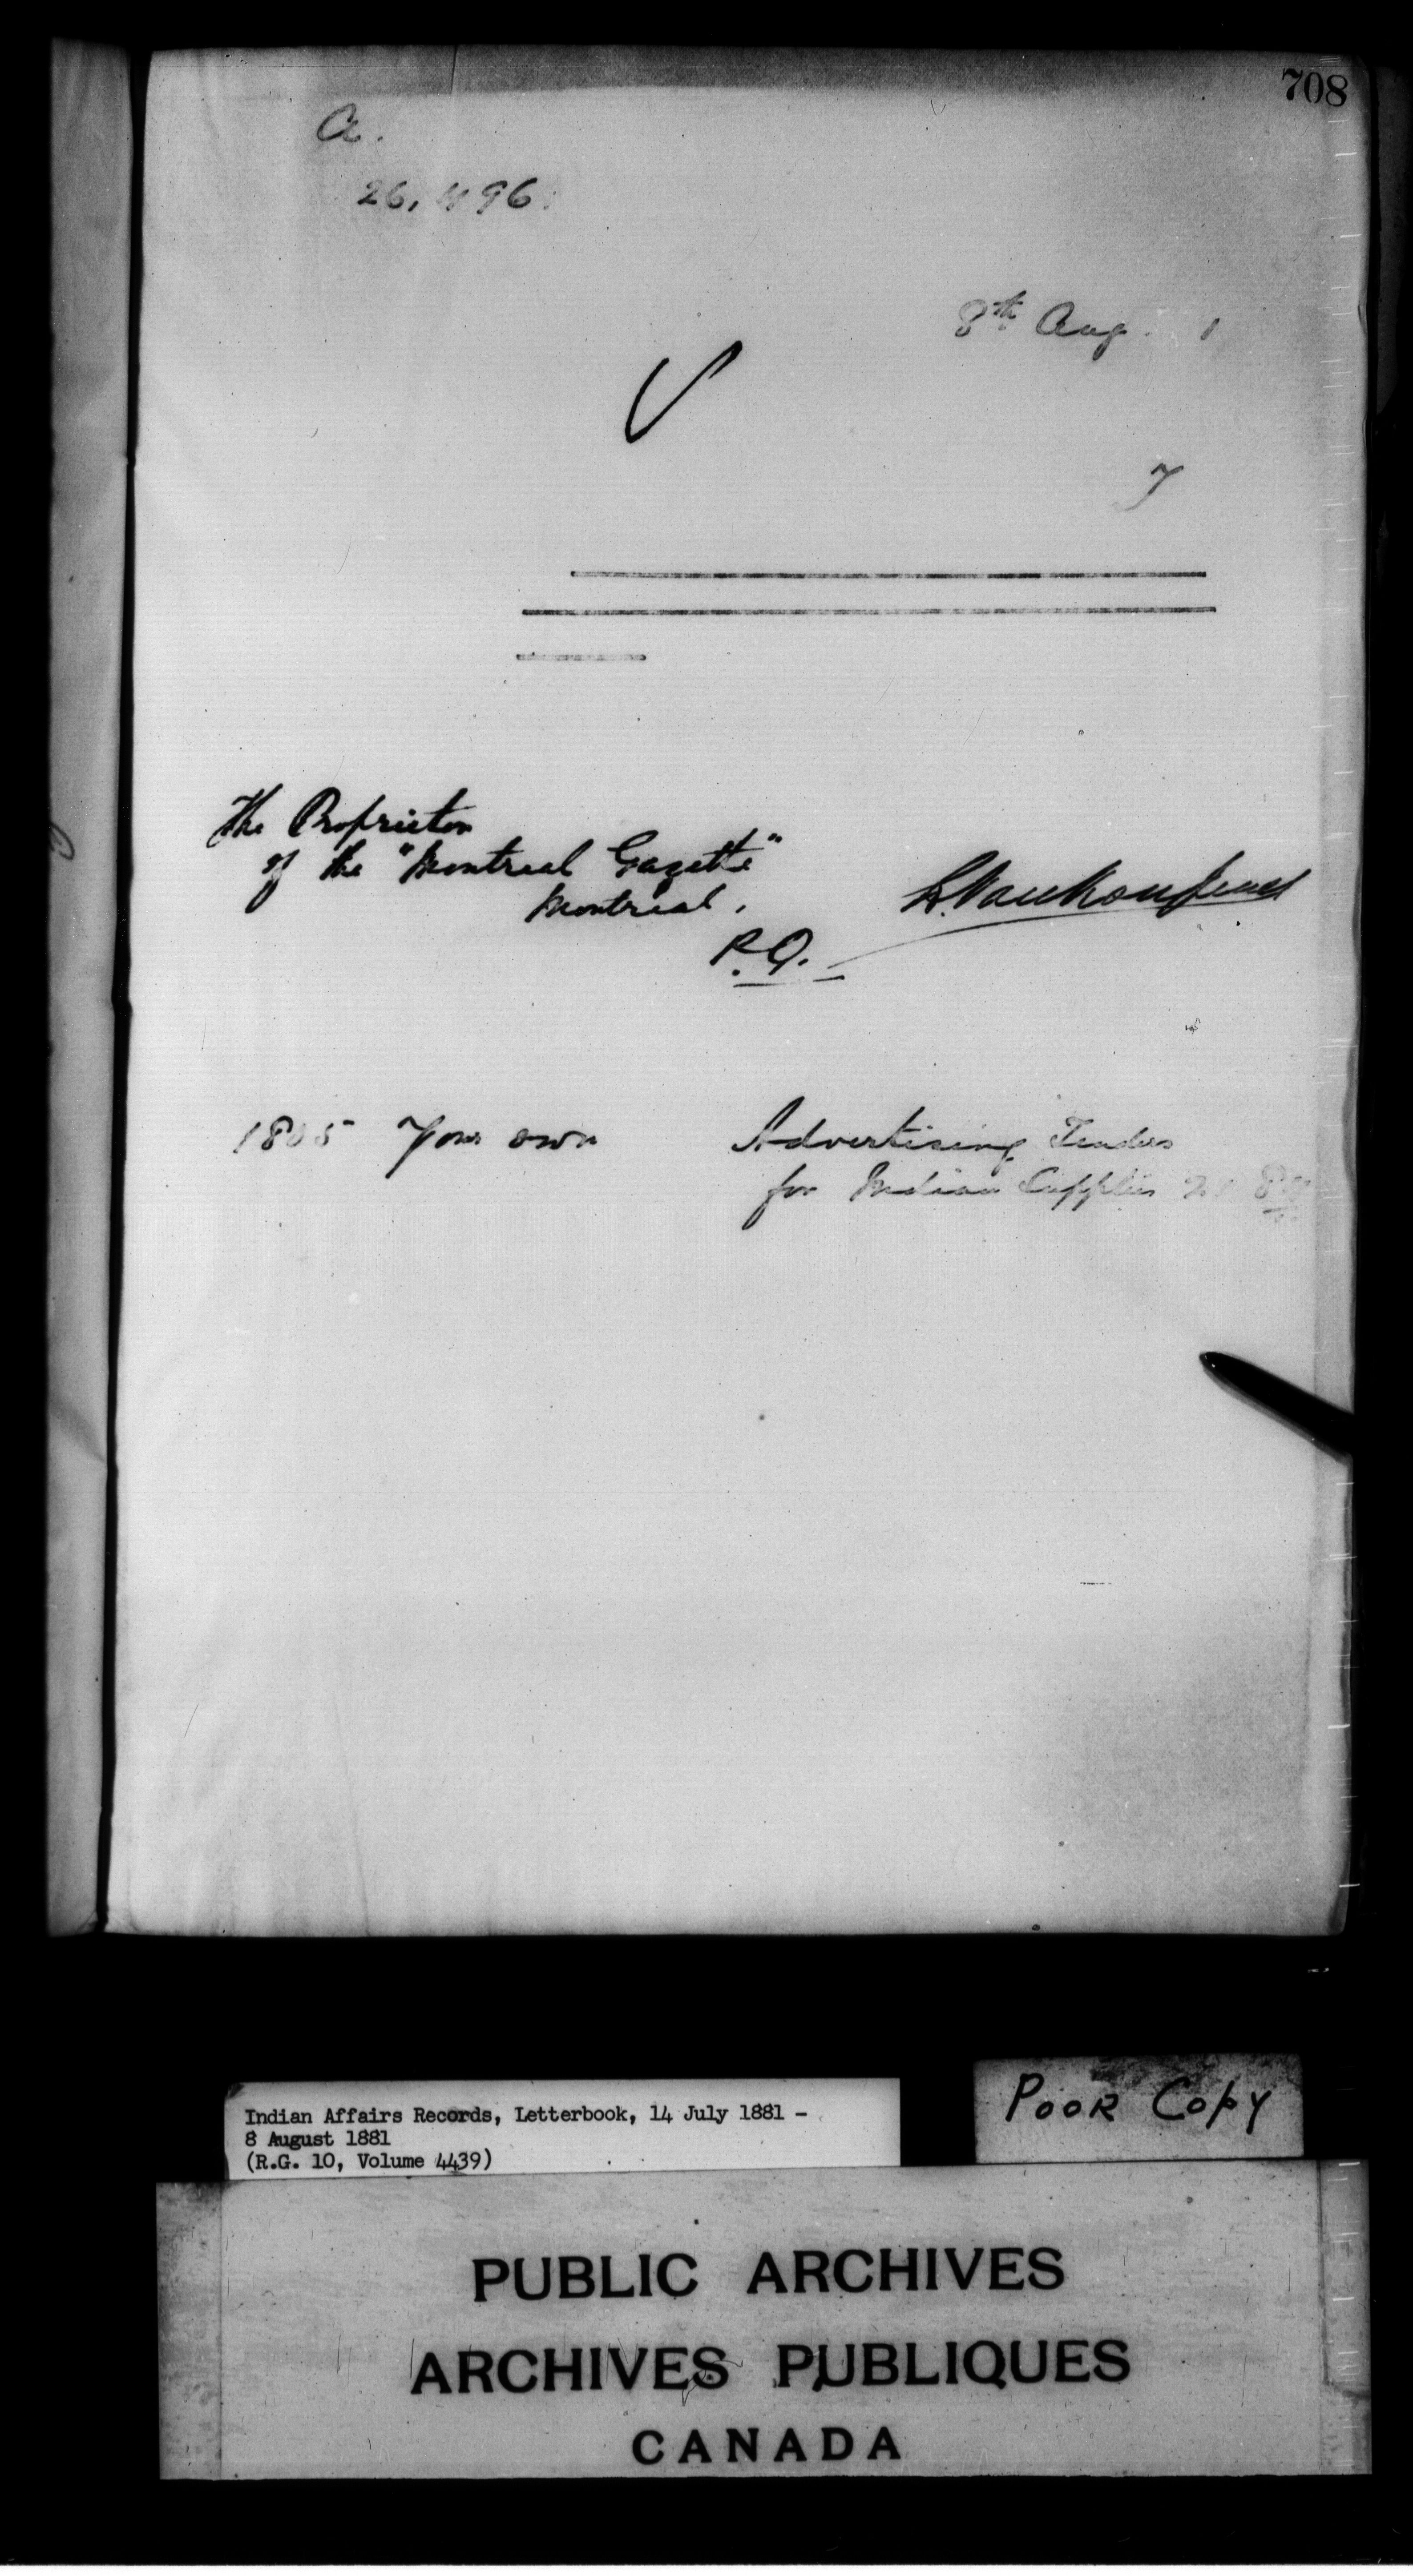 708
A.
26,496.
8th Aug. 1
The Proprietor
of the "Montreal Gazette"
Montreal,
P.Q.
L. Vankoughnet
1805 Your own
Advertising Tenders
for Indian Supplies
Indian Affairs Records, Letterbook, 14 July 1881 -
8 August 1881
(R.G. 10, Volume 4439)
POOR COPY
PUBLIC ARCHIVES
ARCHIVES PUBLIQUES
CANADA